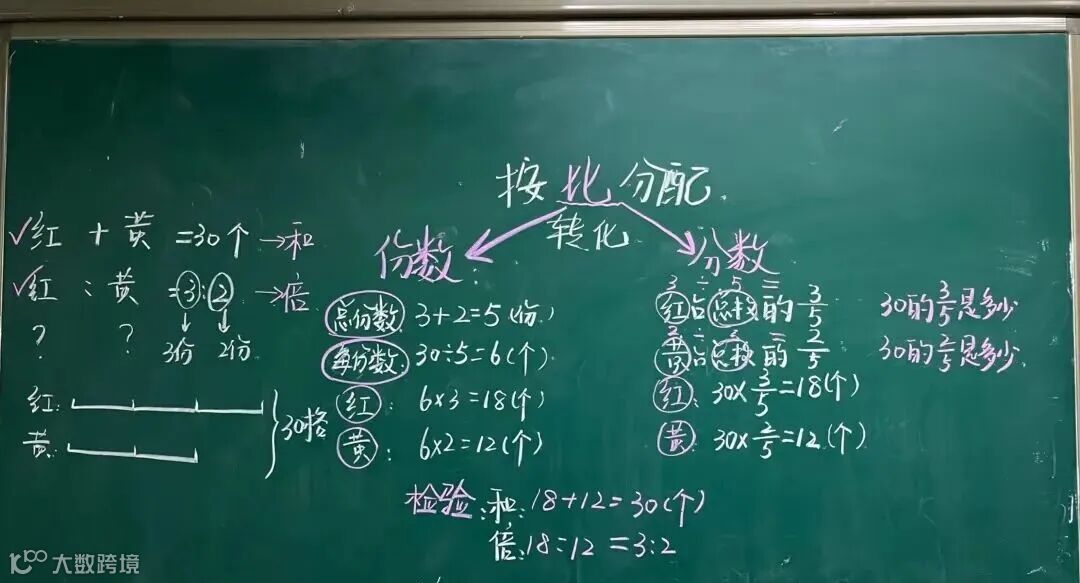 按比分配
转化
✓红 + 黄 = 30个 → 和
✓红 : 黄 = 3:2 → 倍
? ?
3份 2份
红:
黄:
30格
份数:
总份数 3+2=5(份)
每份数: 30÷5=6(个)
红: 6×3=18(个)
黄: 6×2=12(个)
分数
3 ÷ 5 =
红占总格的 3/5 30的3/5是多少
2 ÷ 5 =
黄占总格的 2/5 30的2/5是多少.
红: 30×3/5=18(个)
黄: 30×2/5=12(个)
检验:和:18+12=30(个)
倍:18:12=3:2
大数跨境